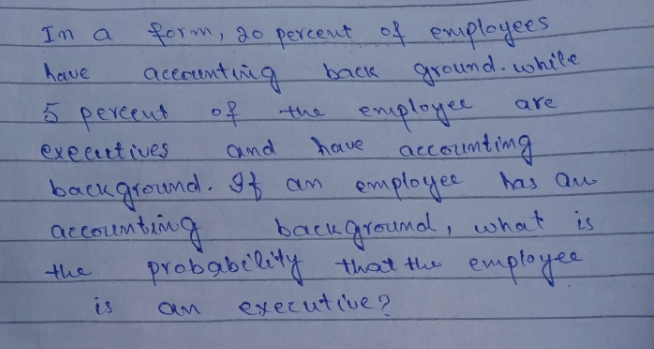 In a form, 20 percent of employees
have accounting back ground. while
5 percent of the employee are
executives and have accounting
background. If an employee has an
accounting background, what is
the probability that the employee
is an executive?